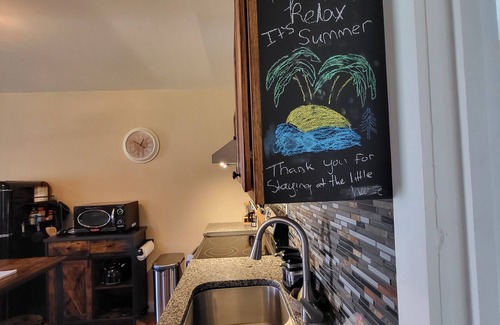 Relax
It's Summer
Thank you for
Staying at the little